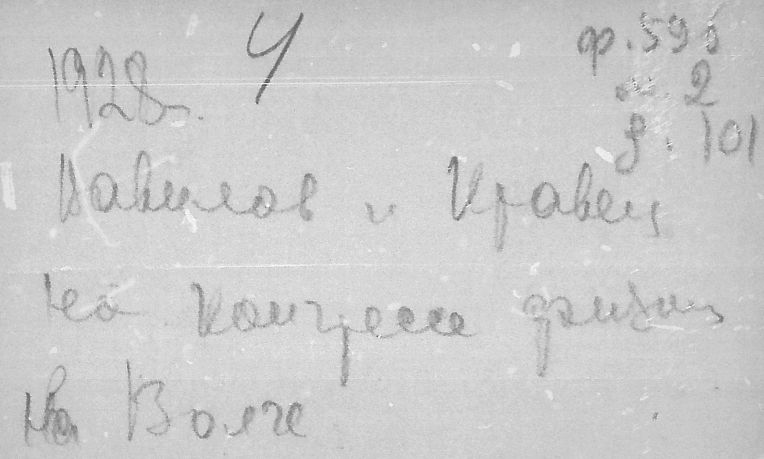 1928г. 4
ф. 596
оп. 2
д. 101
Вавилов и Кравец
на конгрессе физик
на Волге